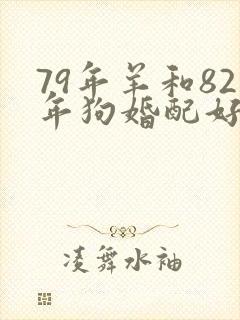 79年羊和82
年狗婚配好
凌舞水袖